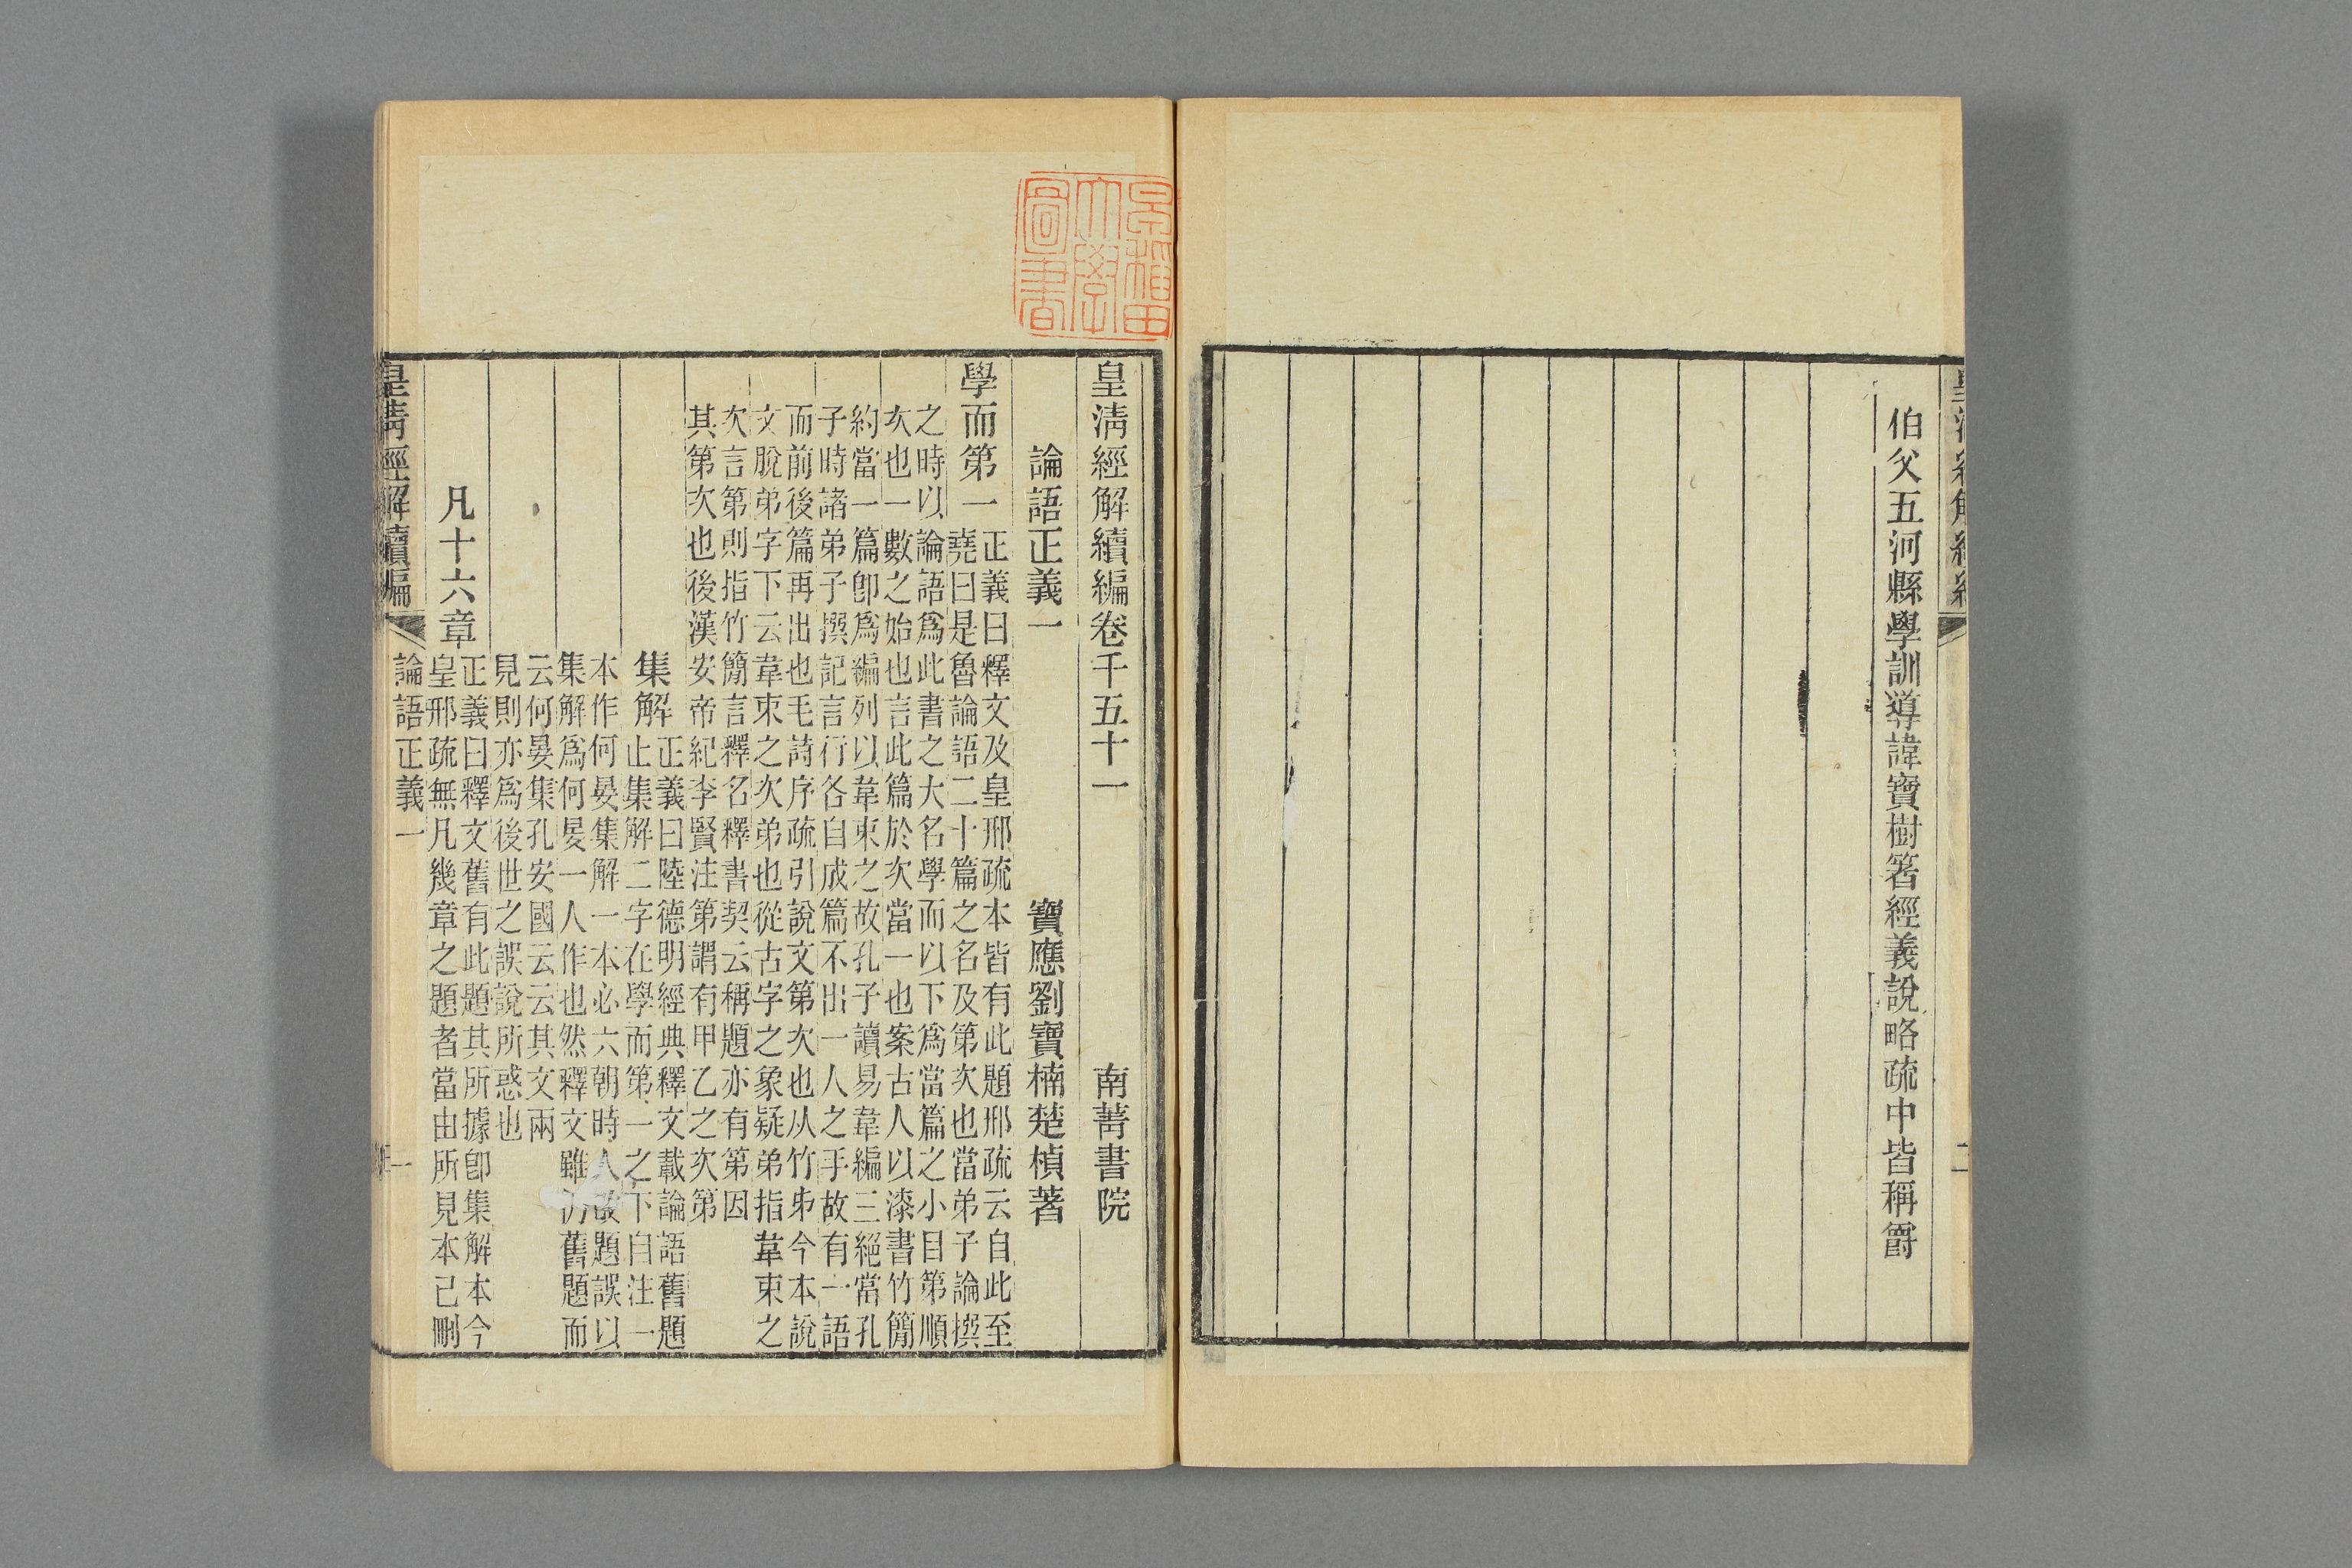 伯父五河縣學訓導諱寶樹箸經義說略疏中皆稱爵
二
皇清經解續編卷千五十一
南菁書院
論語正義一
寶應劉寶楠楚楨著
學而第一
正義曰釋文及皇邢疏本皆有此題邢疏云自此至
堯曰是魯論語二十篇之名及第次也當弟子論撰
之時以論語爲此書之大名學而以下爲當篇之小目第順
次也一數之始也言此篇於次當一也案古人以漆書竹簡
約當一篇卽爲編列以韋束之故孔子讀易韋編三絕當孔
子時諸弟子撰記言行各自成篇不出一人之手故有一語
而前後篇再出也毛詩序疏引說文第次也从竹弟今本說
文脫弟字下云韋束之次弟也從古字之象疑弟指韋束之
次言第則指竹簡言釋名釋書契云稱題亦有第因
其第次也後漢安帝紀李賢注第謂有甲乙之次第
集解
正義曰陸德明經典釋文載論語舊題
止集解二字在學而第一之下自注一
本作何晏集解一本必六朝時人改題誤以
集解爲何晏一人作也然釋文雖仍舊題而
云何晏集孔安國云云其文兩
見則亦爲後世之誤說所惑也
凡十六章
正義曰釋文舊有此題其所據卽集解本今
皇邢疏無凡幾章之題者當由所見本已刪
皇清經解續編
論語正義一
一
圖書
大學
早稲田